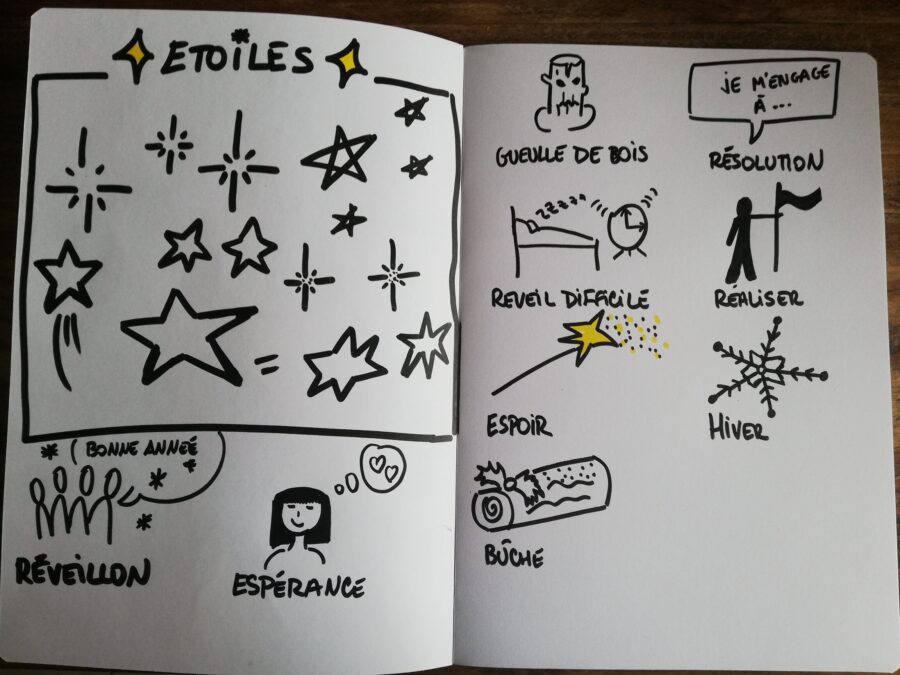 ETOÏLES
=
BONNE ANNEÉ
RÉVEILLON
ESPÉRANCE
GUEULLE DE BOIS
JE M'ENGAGE
À...
RÉSOLUTION
ZZZZZ
REVEIL DIFFICILE
RÉALISER
ESPOIR
HIVER
BÛCHE